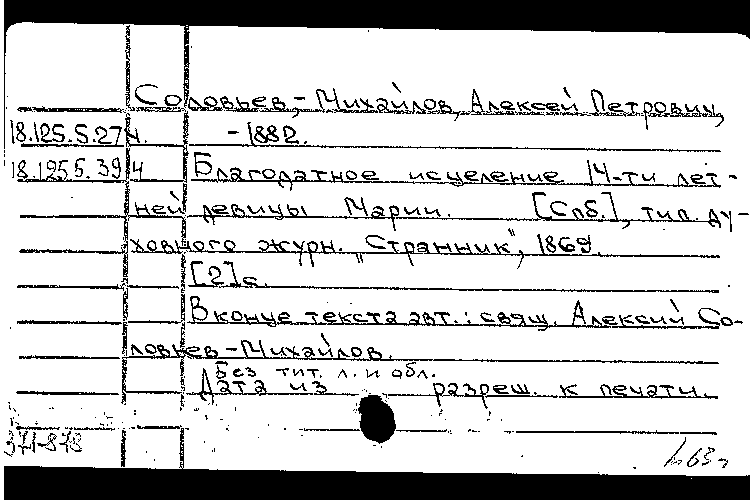 Соловьев-Михайлов, Алексей Петрович,
18.125.5.274. -1882.
18.125.5.394 Благодатное исцеление 14-ти лет-
ней девицы Марии. [Спб.], тип. ду-
ховного журн. "Странник", 1869.
[2] с.
В конце текста авт.: свящ. Алексий Со-
ловьев-Михайлов.
Без тит. л. и обл.
Дата из разреш. к печати.
371-878